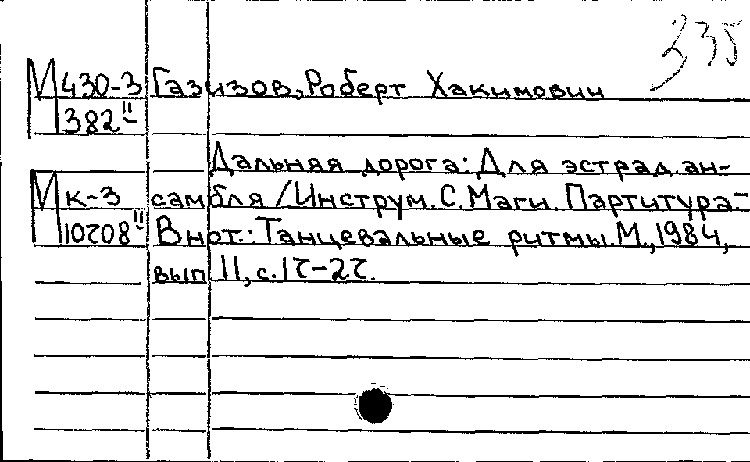 335
М 430-3 Газизов, Роберт Хакимович
382 II
Дальняя дорога: Для эстрад. ан-
М к-3 самбля / Инструм. С. Маги. Партитура –
10208 II В нот.: Танцевальные ритмы. М., 1984,
вып 11, с. 17-27.